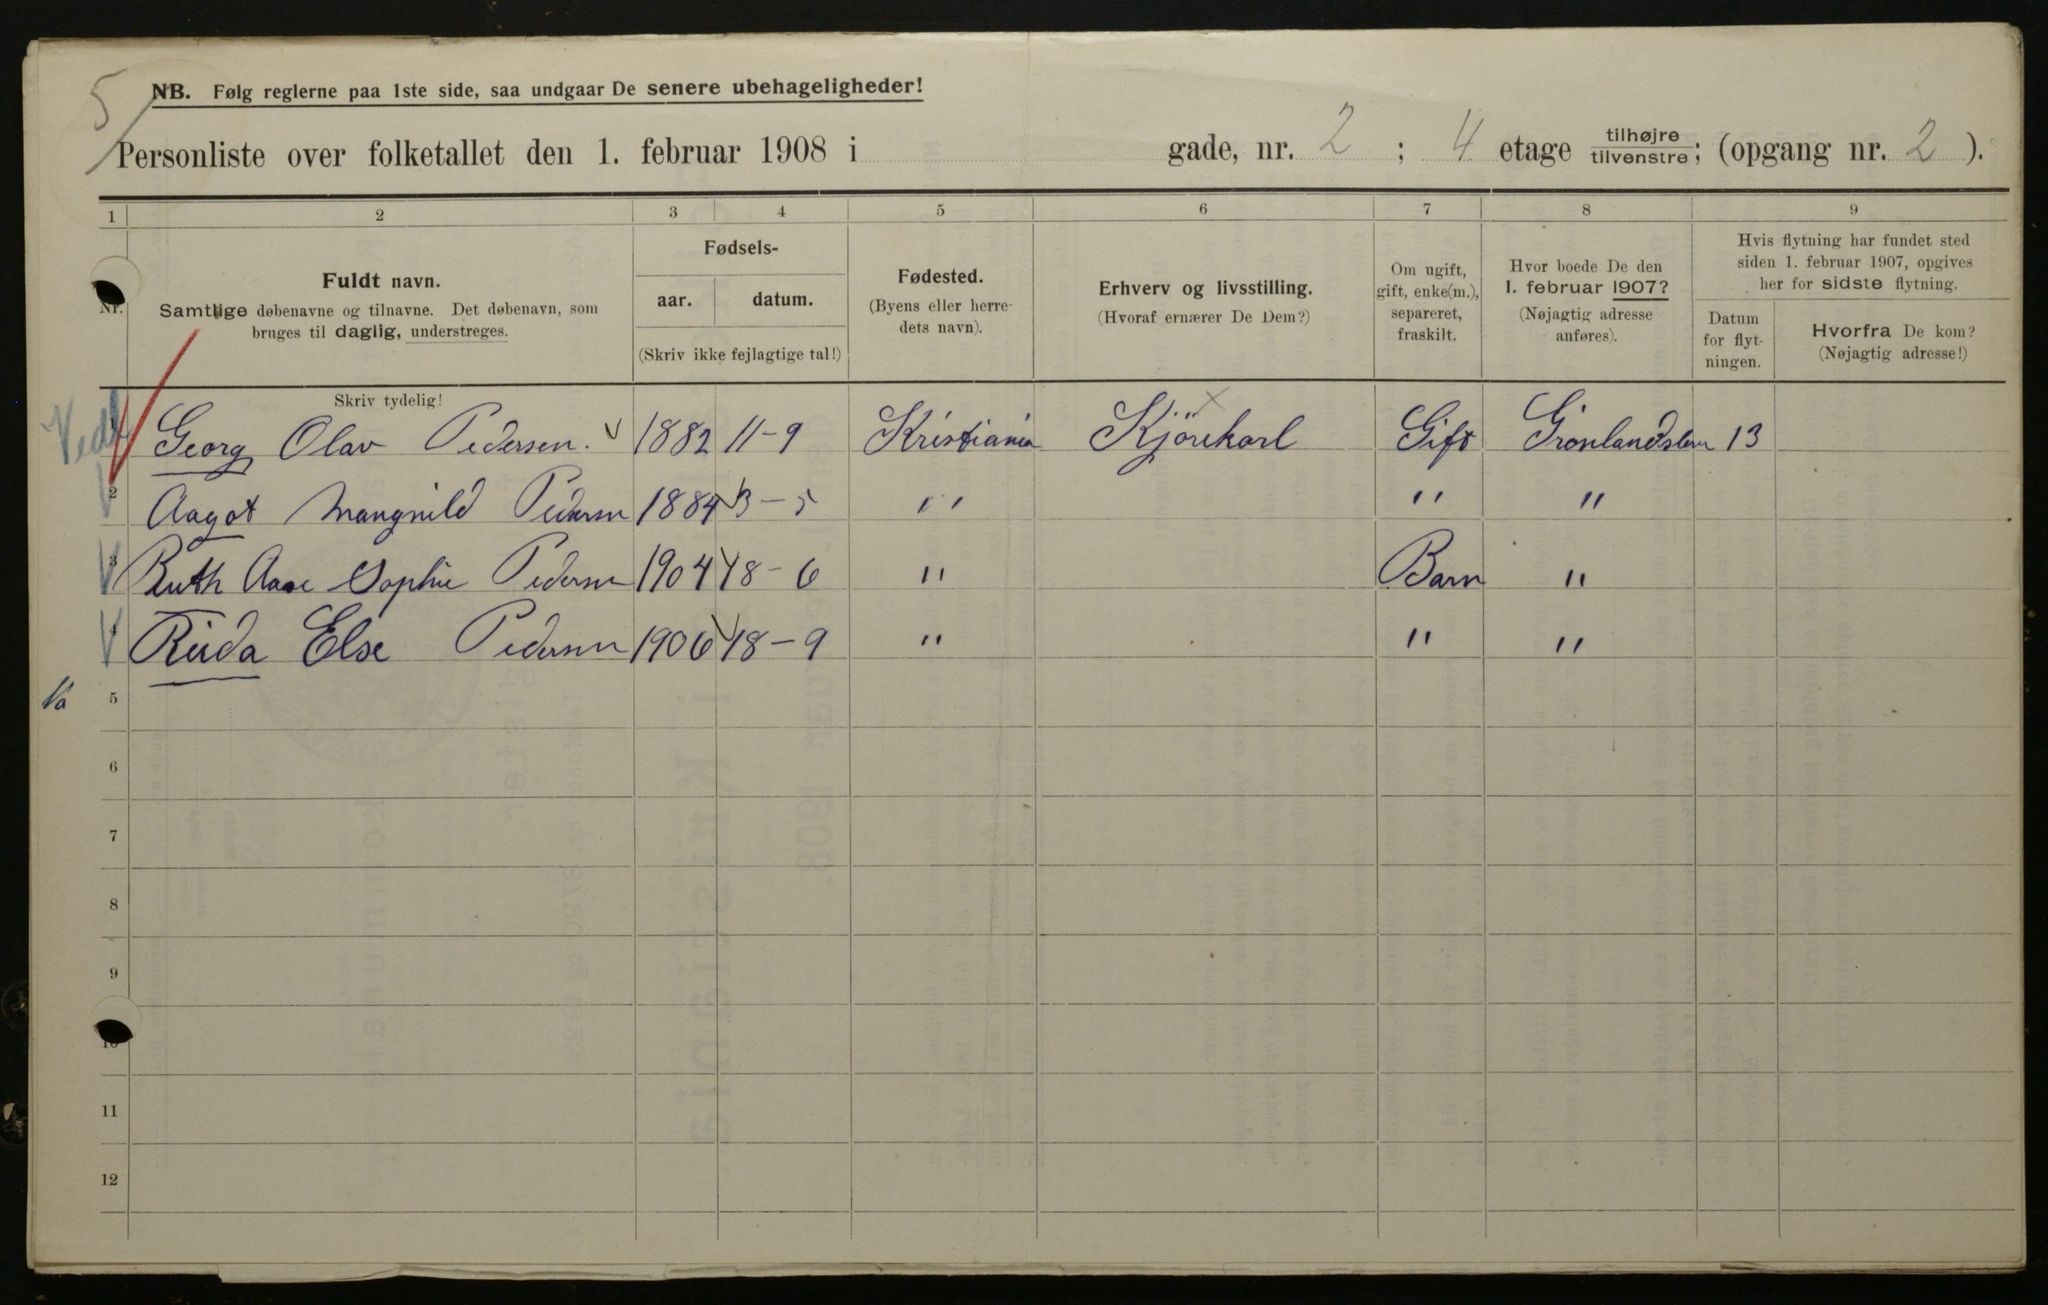 5
NB. Følg reglerne paa 1ste side, saa undgaar De senere ubehageligheder!
Personliste over folketallet den 1. februar 1908 i gade, nr. 2 ; 4 etage tilhøjre / tilvenstre; (opgang nr. 2 ).
1 2 3 4 5 6 7 8 9
Nr.
Fuldt navn.
Samtlige døbenavne og tilnavne. Det døbenavn, som
bruges til daglig, understreges.
Skriv tydelig!
Fødsels-
aar. datum.
(Skriv ikke fejlagtige tal!)
Fødested.
(Byens eller herre-
dets navn).
Erhverv og livsstilling.
(Hvoraf ernærer De Dem?)
Om ugift,
gift, enke(m.),
separeret,
fraskilt.
Hvor boede De den
1. februar 1907?
(Nøjagtig adresse
anføres).
Hvis flytning har fundet sted
siden 1. februar 1907, opgives
her for sidste flytning.
Datum
for flyt-
ningen.
Hvorfra De kom?
(Nøjagtig adresse!)
Georg Olav Pedersen. 1882 11-9 Kristiania Kjörekarl Gift 13
2 Aagot Pedersen 1884 3-5 " " "
3 Ruth Aase Sophie Pedersen 1904 18-6 " Barn "
4 Else Pedersen 1906 18-9 " " "
5
6
7
8
9
10
11
12